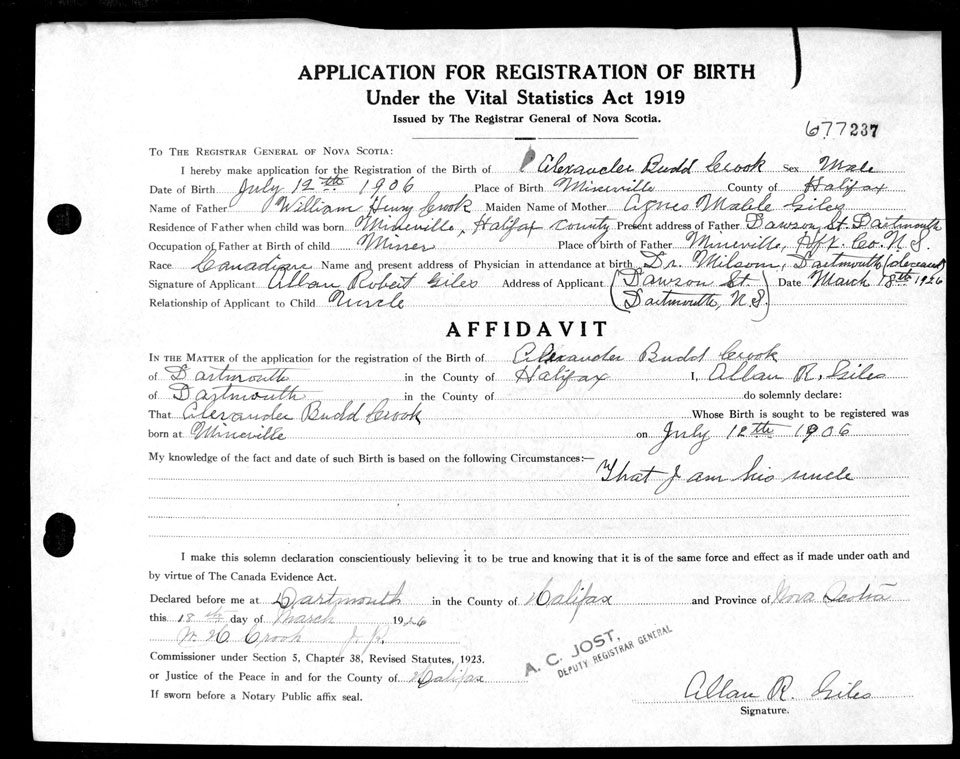 APPLICATION FOR REGISTRATION OF BIRTH
Under the Vital Statistics Act 1919
Issued by The Registrar General of Nova Scotia.
677237
To The Registrar General of Nova Scotia:
I hereby make application for the Registration of the Birth of Alexander Budd Crook Sex Male
Date of Birth July 12th 1906 Place of Birth Mineville County of Halifax
Name of Father William Henry Crook Maiden Name of Mother Agnes Mable Giles
Residence of Father when child was born Mineville, Halifax County Present address of Father Dawson St. Dartmouth
Occupation of Father at Birth of child Miner Place of Father Mineville, Hfx. Co. N.S.
Race Canadian Name and present address of Physician in attendance at birth Dr. Milsom, Dartmouth (deceased)
Signature of Applicant Allan Robert Giles Address of Applicant (Dawson St. Date March 18th 1926
Relationship of Applicant to Child Uncle Dartmouth, N.S.)
AFFIDAVIT
In the Matter of the application for the registration of the Birth of Alexander Budd Crook
of Dartmouth in the County of Halifax I, Allan R. Giles
of Dartmouth in the County of do solemnly declare:
That Alexander Budd Crook Whose Birth is sought to be registered was
born at Mineville on July 12th 1906
My knowledge of the fact and date of such Birth is based on the following Circumstances:—
That I am his uncle
I make this solemn declaration conscientiously believing it to be true and knowing that it is of the same force and effect as if made under oath and
by virtue of The Canada Evidence Act.
Declared before me at Dartmouth in the County of Halifax and Province of Nova Scotia
this 18th day of March 1926
W. H. Crook J.P.
Commissioner under Section 5, Chapter 38, Revised Statutes, 1923.
A. C. JOST,
DEPUTY REGISTRAR GENERAL
or Justice of the Peace in and for the County of Halifax
If sworn before a Notary Public affix seal.
Allan R. Giles
Signature.